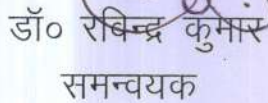 डॉ० रविन्द्र कुमार
समन्वयक